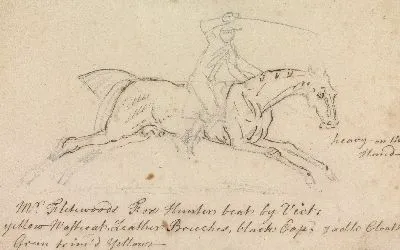 heavy on the
Hand
Mr. Fletewoods Fox Hunter beat by Vict:
yellow Wastcoat Leather Breeches, black Cap, Sadle Cloath
Green trim'd Yellow